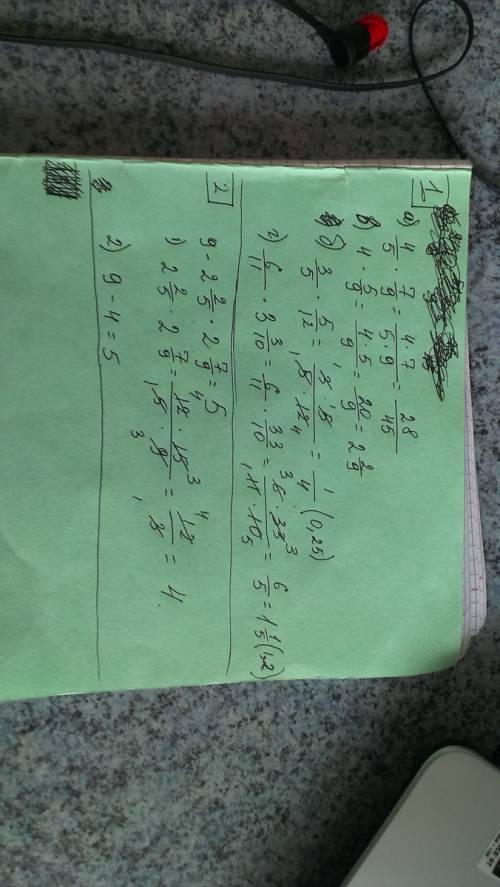 1
а) 4/5 · 7/9 = 4·7/5·9 = 28/45
в) 4 · 5/9 = 4·5/9 = 20/9 = 2 2/9
б) 3/5 · 5/12 = 3·5/5·12 = 1/4 (0,25)
г) 6/11 · 3 3/10 = 6/11 · 33/10 = 6·33/11·10 = 6/5 = 1 1/5 (1,2)
2
9 - 2 2/5 · 2 7/9 = 5
1) 2 2/5 · 2 7/9 = 12·25/5·9 = 12/3 = 4.
2) 9 - 4 = 5